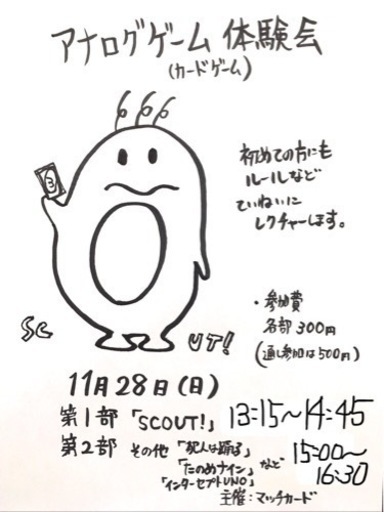 アナログゲーム 体験会
(カードゲーム)
666
3
初めての方にも
ルールなど
ていねいに
レクチャーします。
・参加費
各部 300円
(通し参加は500円)
SC
UT!
11月28日(日)
第1部 「SCOUT!」 13:15〜14:45
第2部 その他 「犯人は踊る」 15:00〜
「たのめナイン」 など
16:30
「インターセプトUNO」
主催:マッチカード